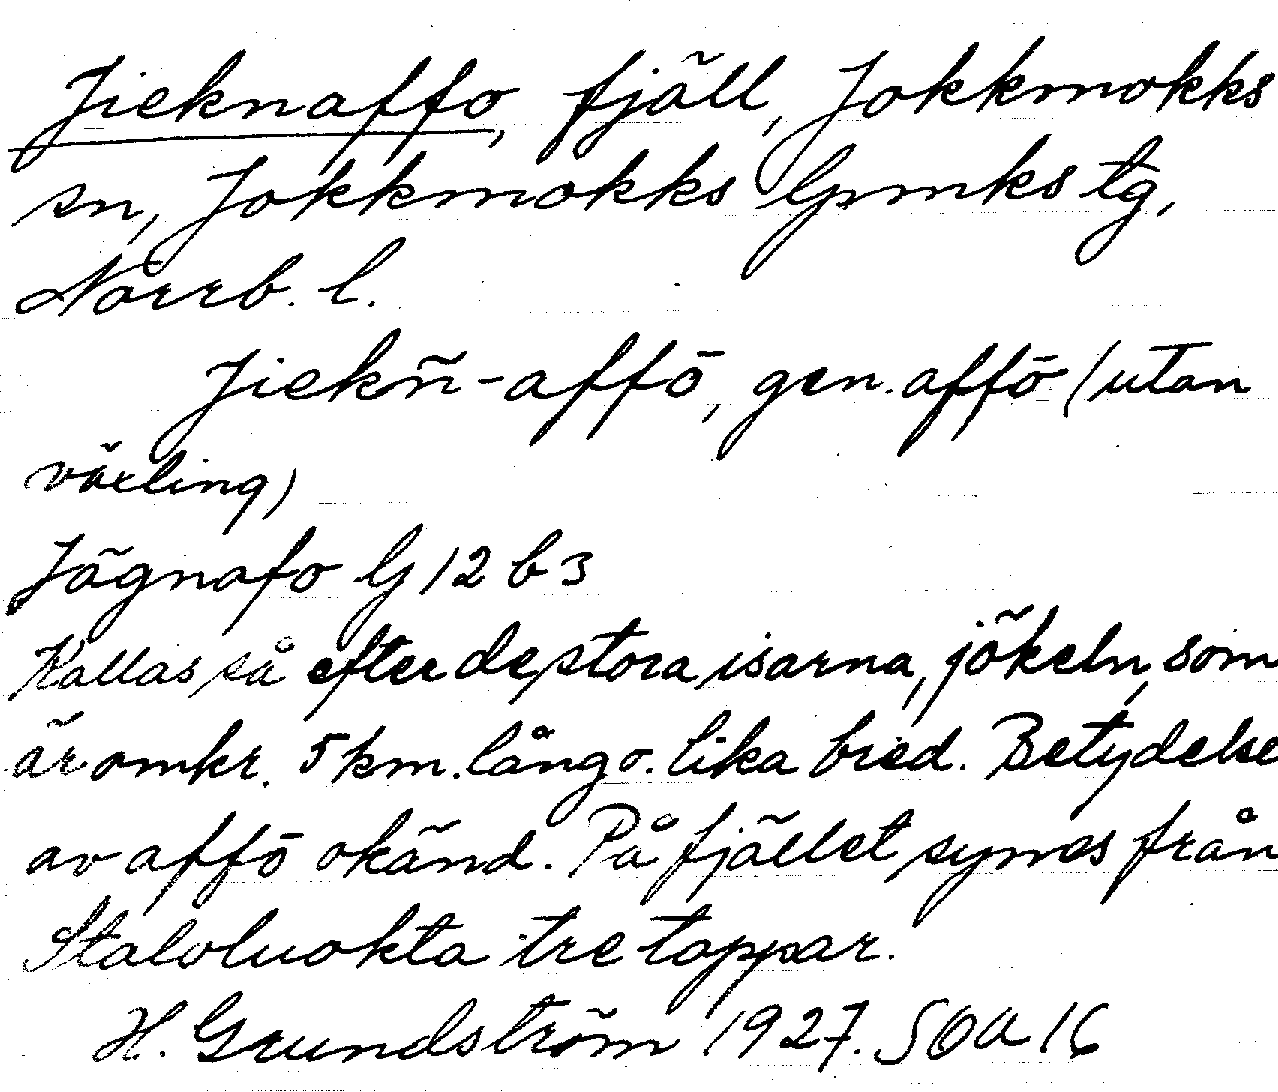 Jieknaffo, fjäll, Jokkmokks
sn, Jokkmokks lpmks tg,
Norrb. l.
Jiekn̄-affō, gen. affō (utan
växling)
Jägnafo G 12 b 3
Kallas så efter de stora isarna, jökeln, som
är omkr. 5 km. lång o. lika bred. Betydelse
av affō okänd. På fjället synes från
Staloluokta tre toppar.
H. Grundström 1927. SOA 16